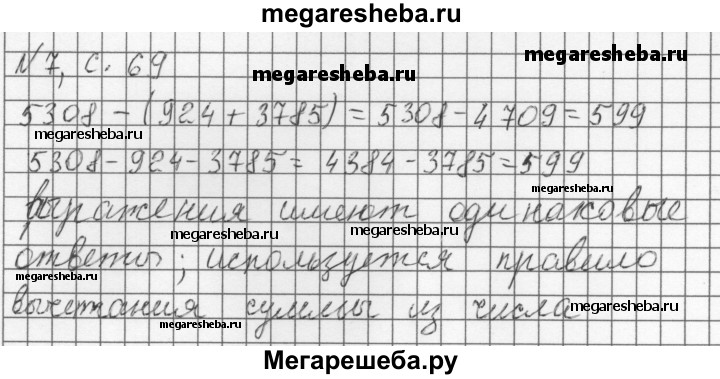 megaresheba.ru
№7, с. 69
megaresheba.ru
megaresheba.ru
5308 - (924 + 3785) = 5308 - 4709 = 599
megaresheba.ru
5308 - 924 - 3785 = 4384 - 3785 = 599
megaresheba.ru
выражения имеют одинаковые
megaresheba.ru
megaresheba.ru
ответы; используется правило
megaresheba.ru
вычитания суммы из числа
megaresheba.ru
megaresheba.ru
Мегарешеба.ру